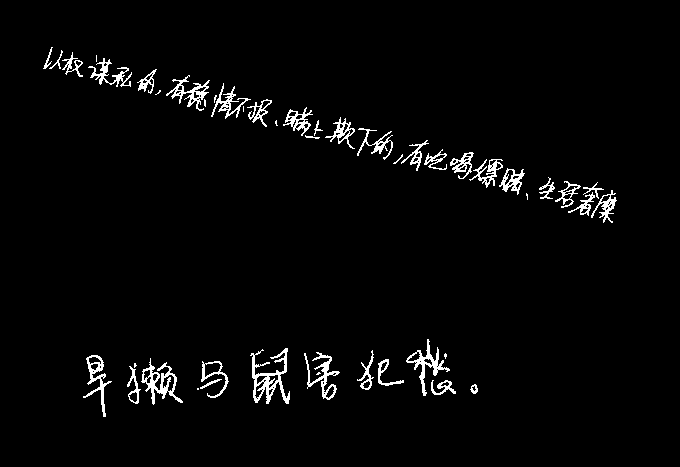 以权谋私的,有隐情不报、瞒上欺下的,有吃喝嫖赌、生活奢糜
旱獭与鼠害犯愁。